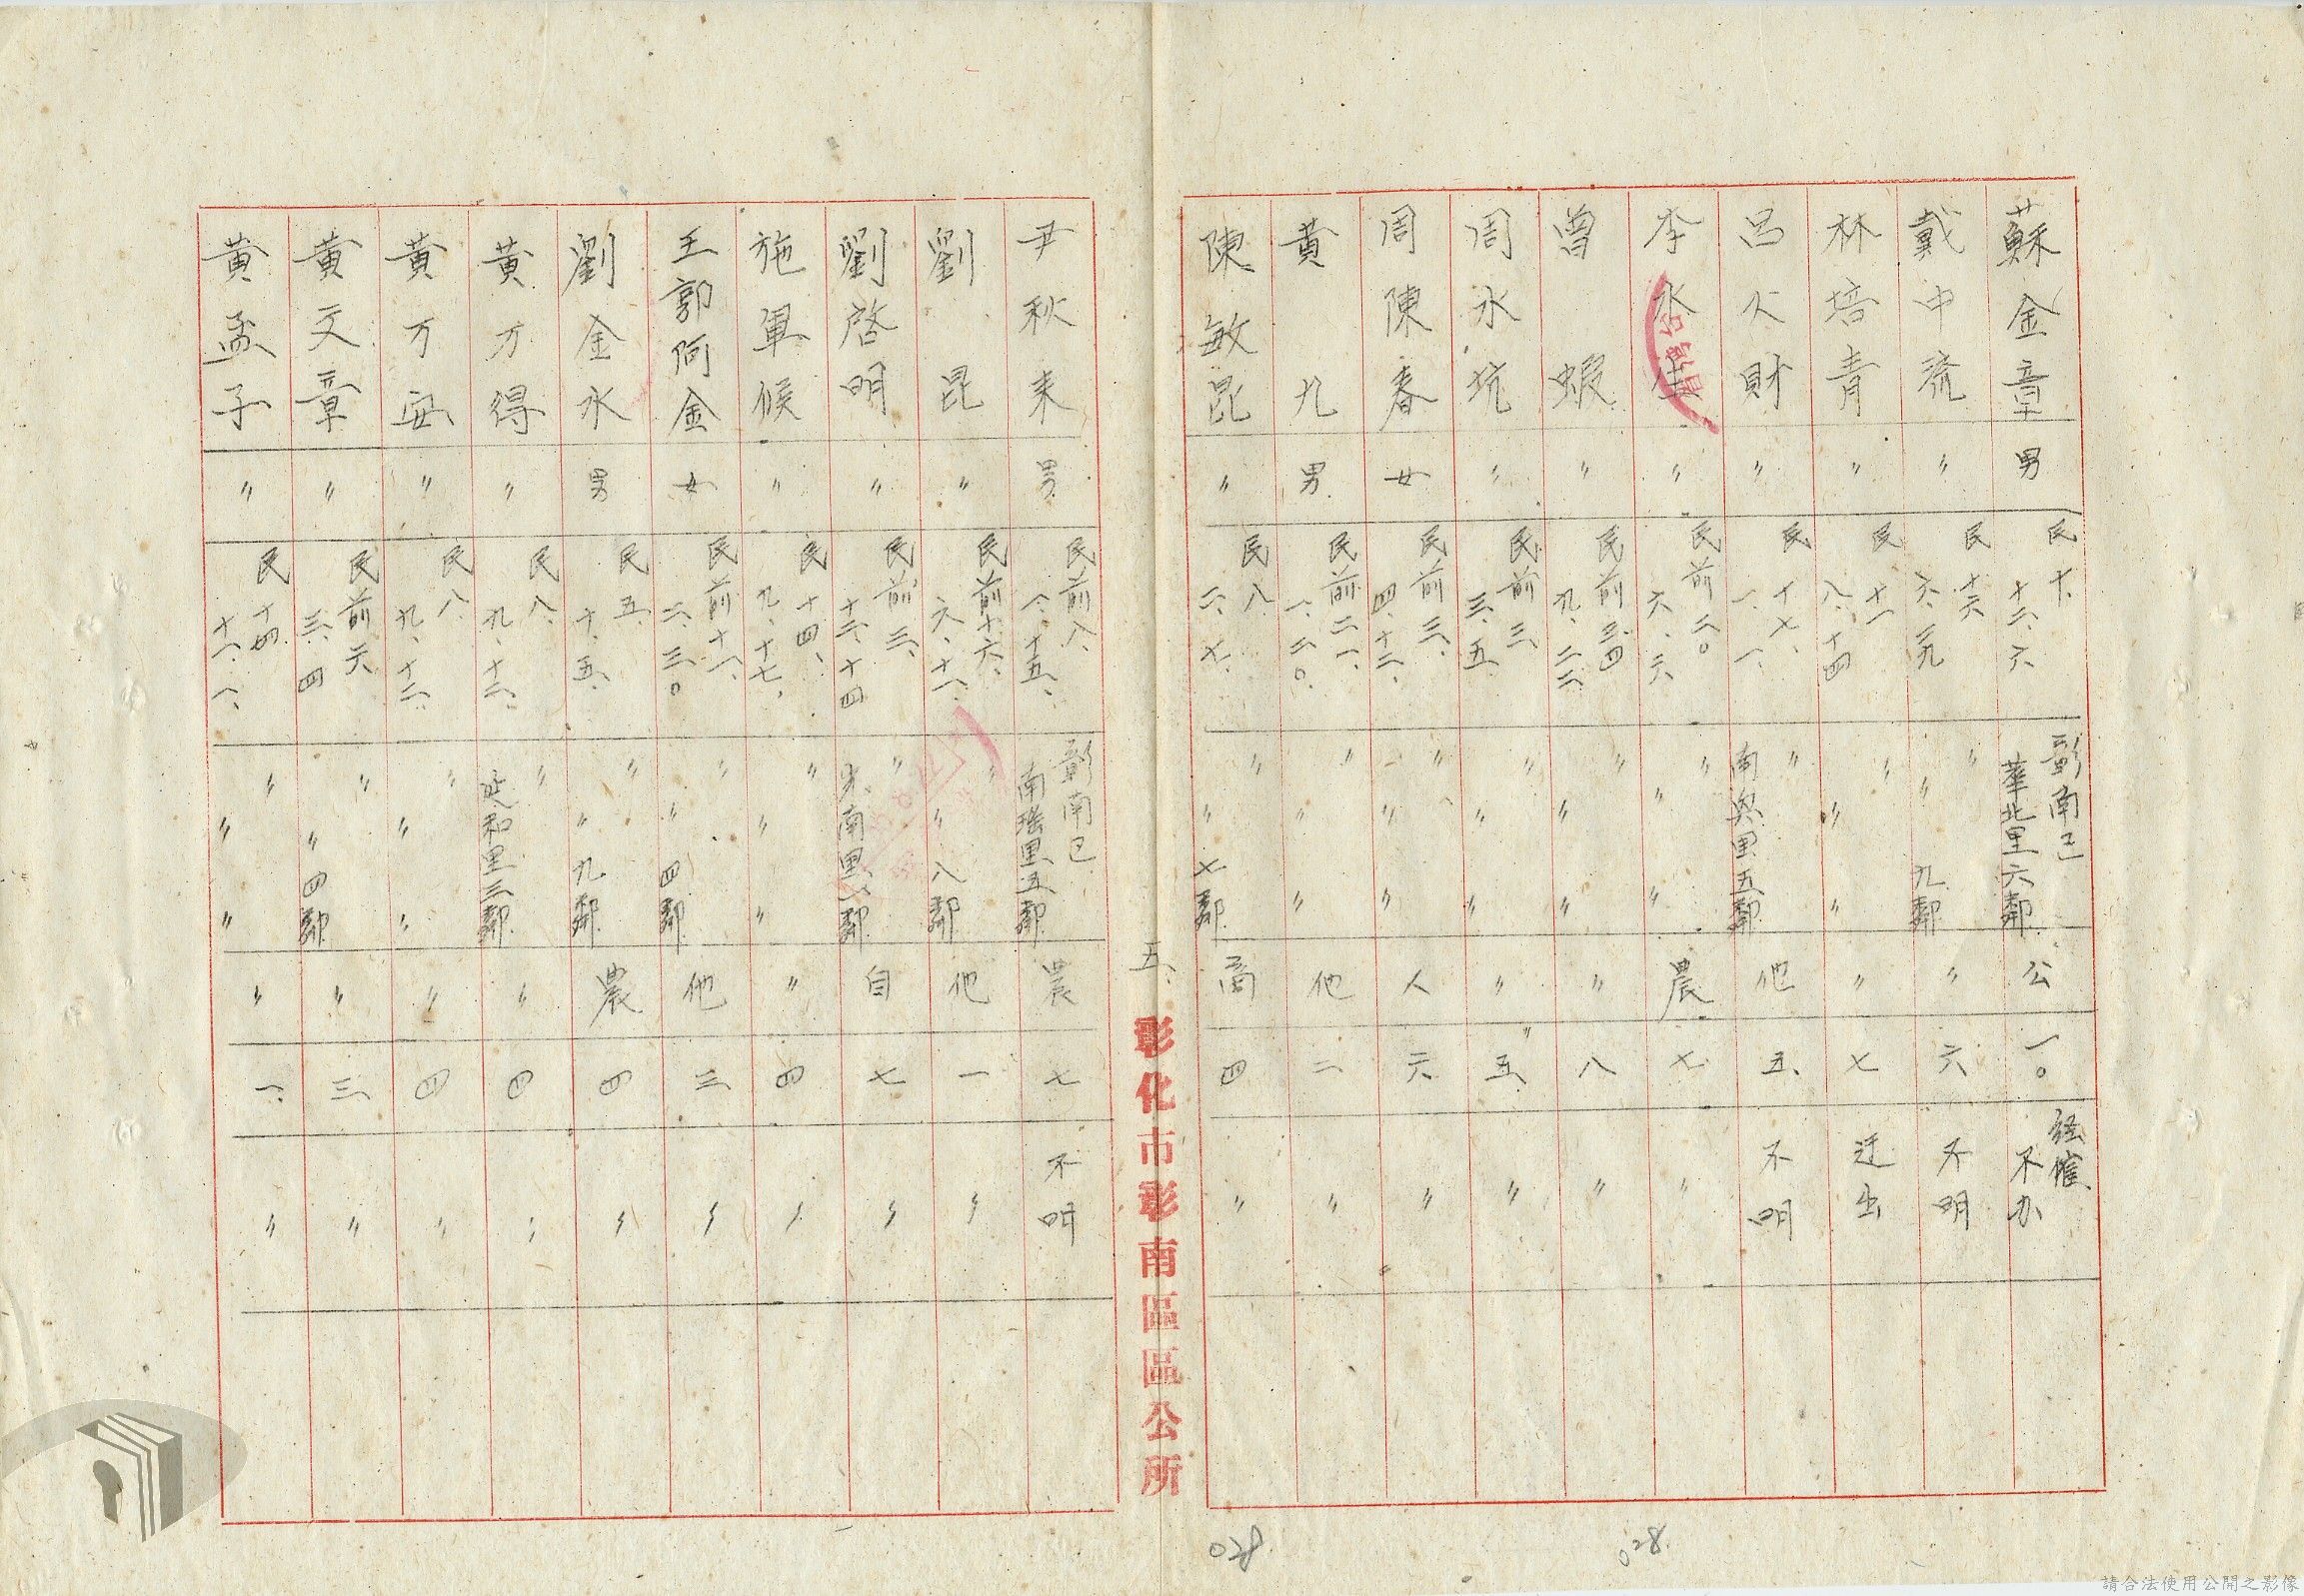 蘇金章 男 民十、十二、六 彰南区華北里六鄰 公 一〇 経催不办
戴中流 〃 民十六、六、二九 〃 〃 九鄰 〃 六 不明
林培青 〃 民十一、八、十四 〃 〃 〃 〃 七 迁出
呂火財 〃 民十七、一、一、 〃 南興里五鄰 他 五 不明
李水生 〃 民前二〇、六、六 〃 〃 〃 農 七 〃
曾蝦 〃 民前三四、九、二二 〃 〃 〃 〃 八 〃
周水坑 〃 民前三、三、五 〃 〃 〃 〃 五 〃
周陳春 女 民前三、四、十二、 〃 〃 〃 人 六 〃
黃九 男 民前二一、一、二〇 〃 〃 〃 他 二 〃
陳敏昆 〃 民八、二、七、 〃 〃 七鄰 商 四 〃
五、
彰化市彰南區區公所
尹秋来 男 民前八、八、十五、 彰南区南瑤里五鄰 農 七 不明
劉昆 〃 民前十六、六、十一、 〃 〃 八鄰 他 一 〃
劉啓明 〃 民前三、十二、十四 〃 南里一鄰 自 七 〃
施軍候 〃 民十四、九、十七、 〃 〃 〃 〃 四 〃
王郭阿金 女 民前十一、二、三〇 〃 〃 四鄰 他 三 〃
劉金水 男 民五、十、五、 〃 〃 九鄰 農 四 〃
黃万得 〃 民八、九、十二、 〃 延和里三鄰 〃 四 〃
黃万安 〃 民八、九、十二、 〃 〃 〃 〃 四 〃
黃文章 〃 民前六、三、四 〃 〃 四鄰 〃 三 〃
黃孟子 〃 民十四、十一、一、 〃 〃 〃 〃 一 〃
028
028
請合法使用公開之影像